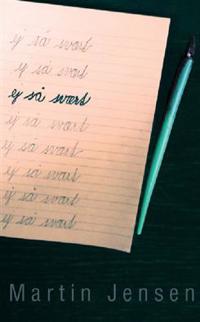 ej så svært
ej så svært
ej så svært
ej så svært
ej så svært
ej så svært
ej så svært
ej så svært
Martin Jensen